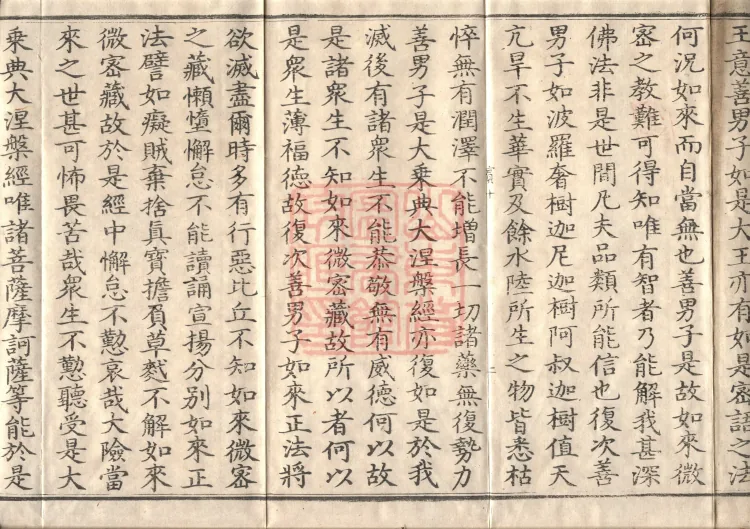 王意善男子如是大王亦有如是密語之法
何況如來而自當無也善男子是故如來微
密之教難可得知唯有智者乃能解我甚深
佛法非是世間凡夫品類所能信也復次善
男子如波羅奢樹迦尼迦樹阿叔迦樹值天
亢旱不生華實及餘水陸所生之物皆悉枯
悴無有潤澤不能增長一切諸藥無復勢力
善男子是大乘典大涅槃經亦復如是於我
滅後有諸眾生不能恭敬無有威德何以故
是諸眾生不知如來微密藏故所以者何以
是眾生薄福德故復次善男子如來正法將
欲滅盡爾時多有行惡比丘不知如來微密
之藏懶憧懈怠不能讀誦宣揚分別如來正
法譬如癡賊棄捨真寶擔負草䴬不解如來
微密藏故於是經中懈怠不懃哀哉大險當
來之世甚可怖畏苦哉眾生不懃聽受是大
乘典大涅槃經唯諸菩薩摩訶薩等能於是